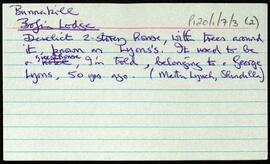 Bunnakill
P120/1/7/3 (2)
Bofin Lodge
Derelict 2-storey house, with trees around
it, known as Lyons's. It used to be
a , I'm told, belonging to a George
Lyons, 50 yrs ago. (Martin Lynch, Shindilla)